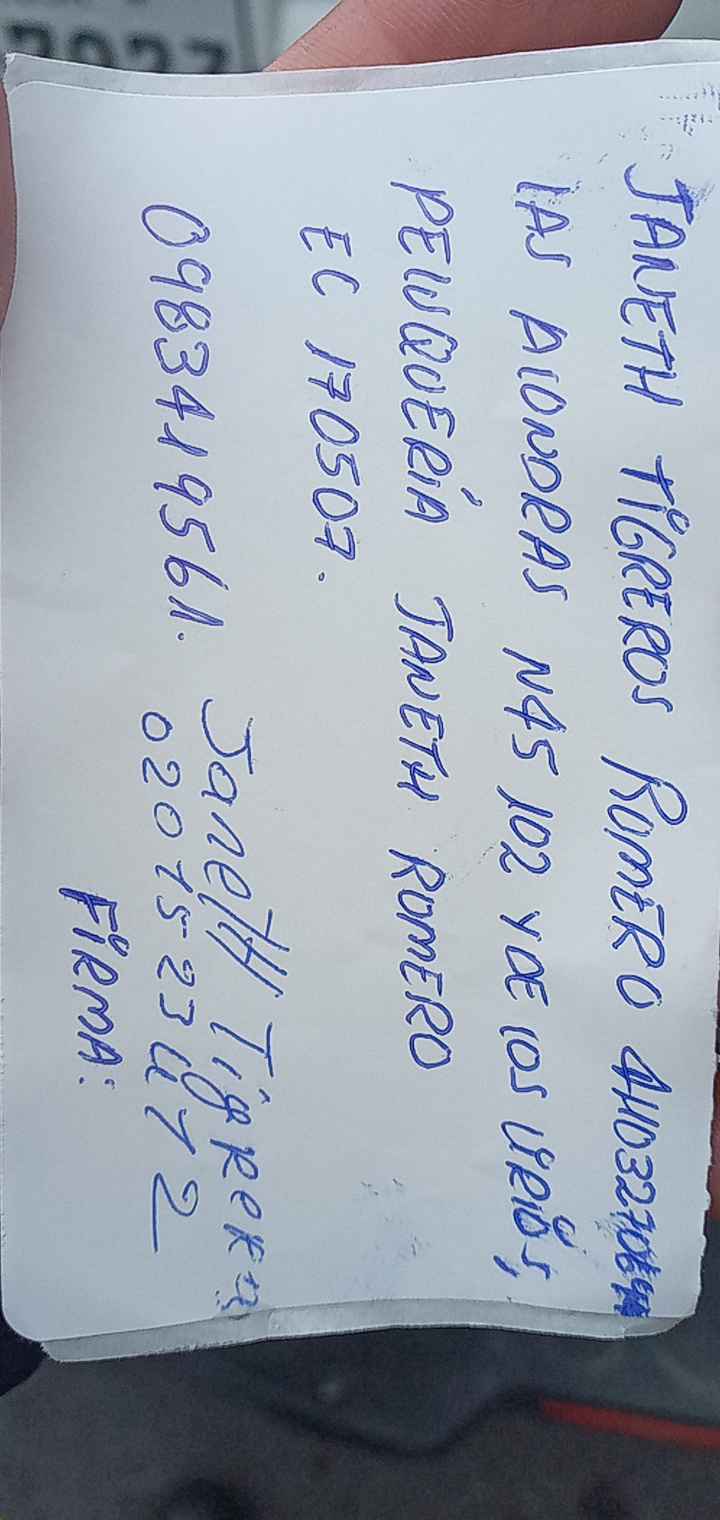 JANETH TIGREROS ROMERO
LAS ALONDRAS N45 102 Y DE LOS LIRIOS,
PELUQUERÍA JANETH ROMERO
EC 170507.
0983419561.
Janeth Tigrero
020
FIRMA: